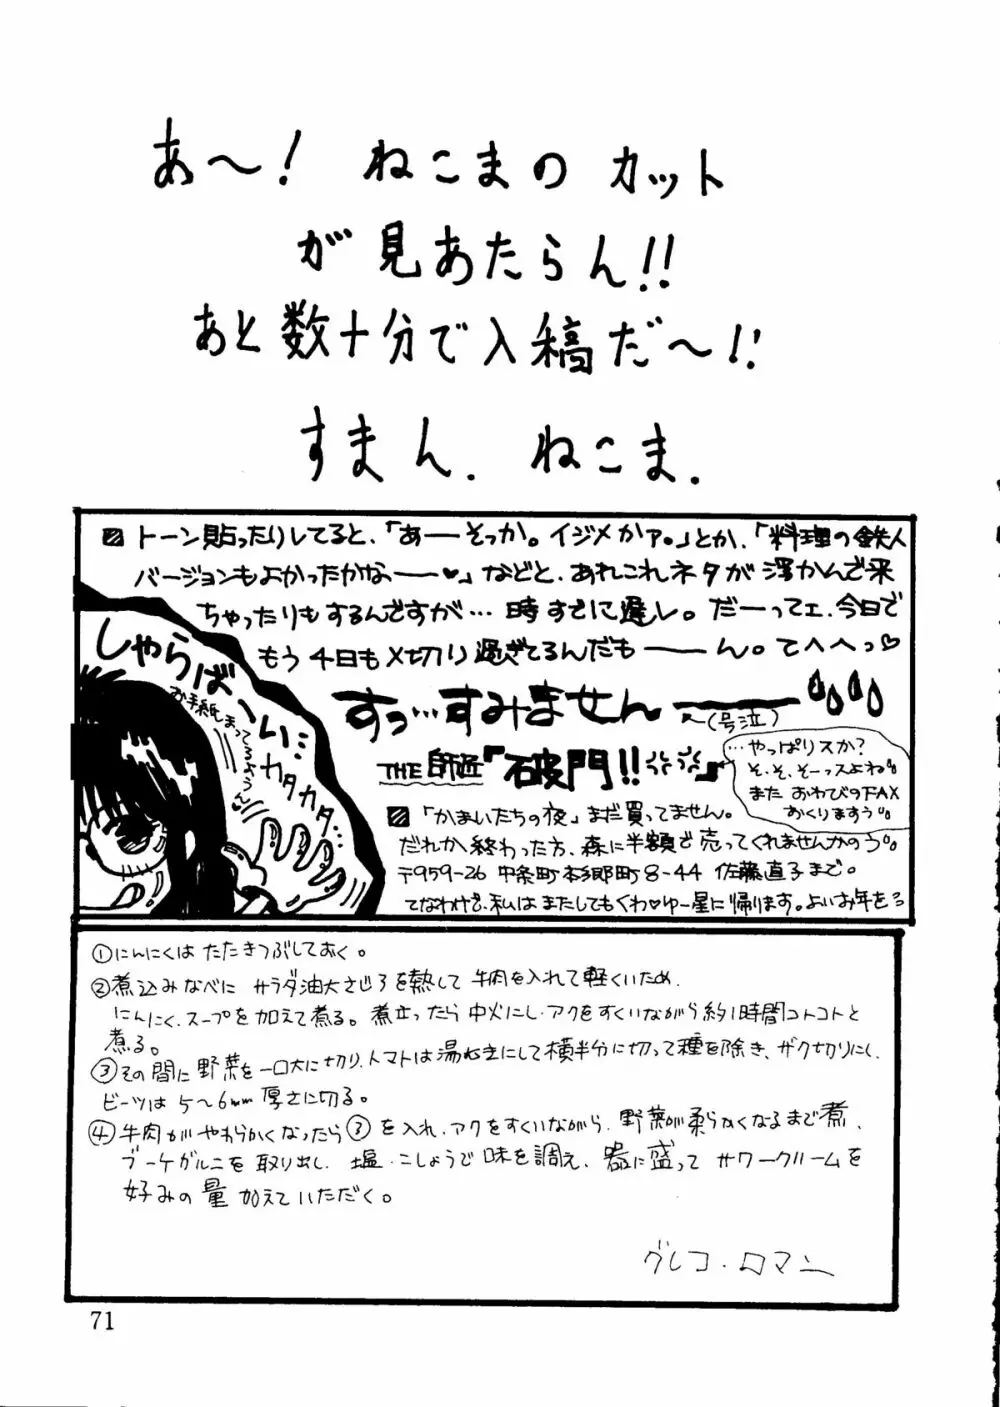 あ〜！ ねこまの カット
が見あたらん!!
あと数十分で入稿だ〜!!
すまん. ねこま.
トーン貼ったりしてると、「あーーそっか。イジメかァ。」とか、「料理の鉄人
バージョンもよかったかなーー♥」などと、あれこれネタが浮かんで来
ちゃったりもするんですが…時すでに遅し。だーってェ、今日で
もう4日も〆切り過ぎてるんだもーーん。てへへっ♡
すっ…すみません———
へ(号泣)
THE 師匠『破門!!
』
…やっぱりスか？
そ、そ、そーっスよね
また おわびのFAX
おくりますう
しゃらば
へい…
お手紙まってるよぅん
カタカタ…
「かまいたちの夜」まだ買ってません。
だれか終わった方、森に半額で売ってくれませんかのう
〒959-26 中条町本郷町8-44 佐藤直子まで。
てなわけで、私はまたしてもくわ♥ゆー星に帰ります。よいお年を
①にんにくは たたきつぶしておく。
②煮込みなべに サラダ油大さじ3を熱して 牛肉を入れて軽くいため、
にんにく、スープを加えて煮る。煮立ったら中火にし、アクをすくいながら約1時間コトコトと
煮る。
③その間に野菜を一口大に切り、トマトは湯むきにして横半分に切って種を除き、ザク切りにし、
ビーツは5〜6mm厚さに切る。
④牛肉がやわらかくなったら③を入れ、アクをすくいながら、野菜が柔らかくなるまで煮、
ブーケガルニを取り出し、塩、こしょうで味を調え、器に盛ってサワークリームを
好みの量加えていただく。
グレコ・ロマン
71